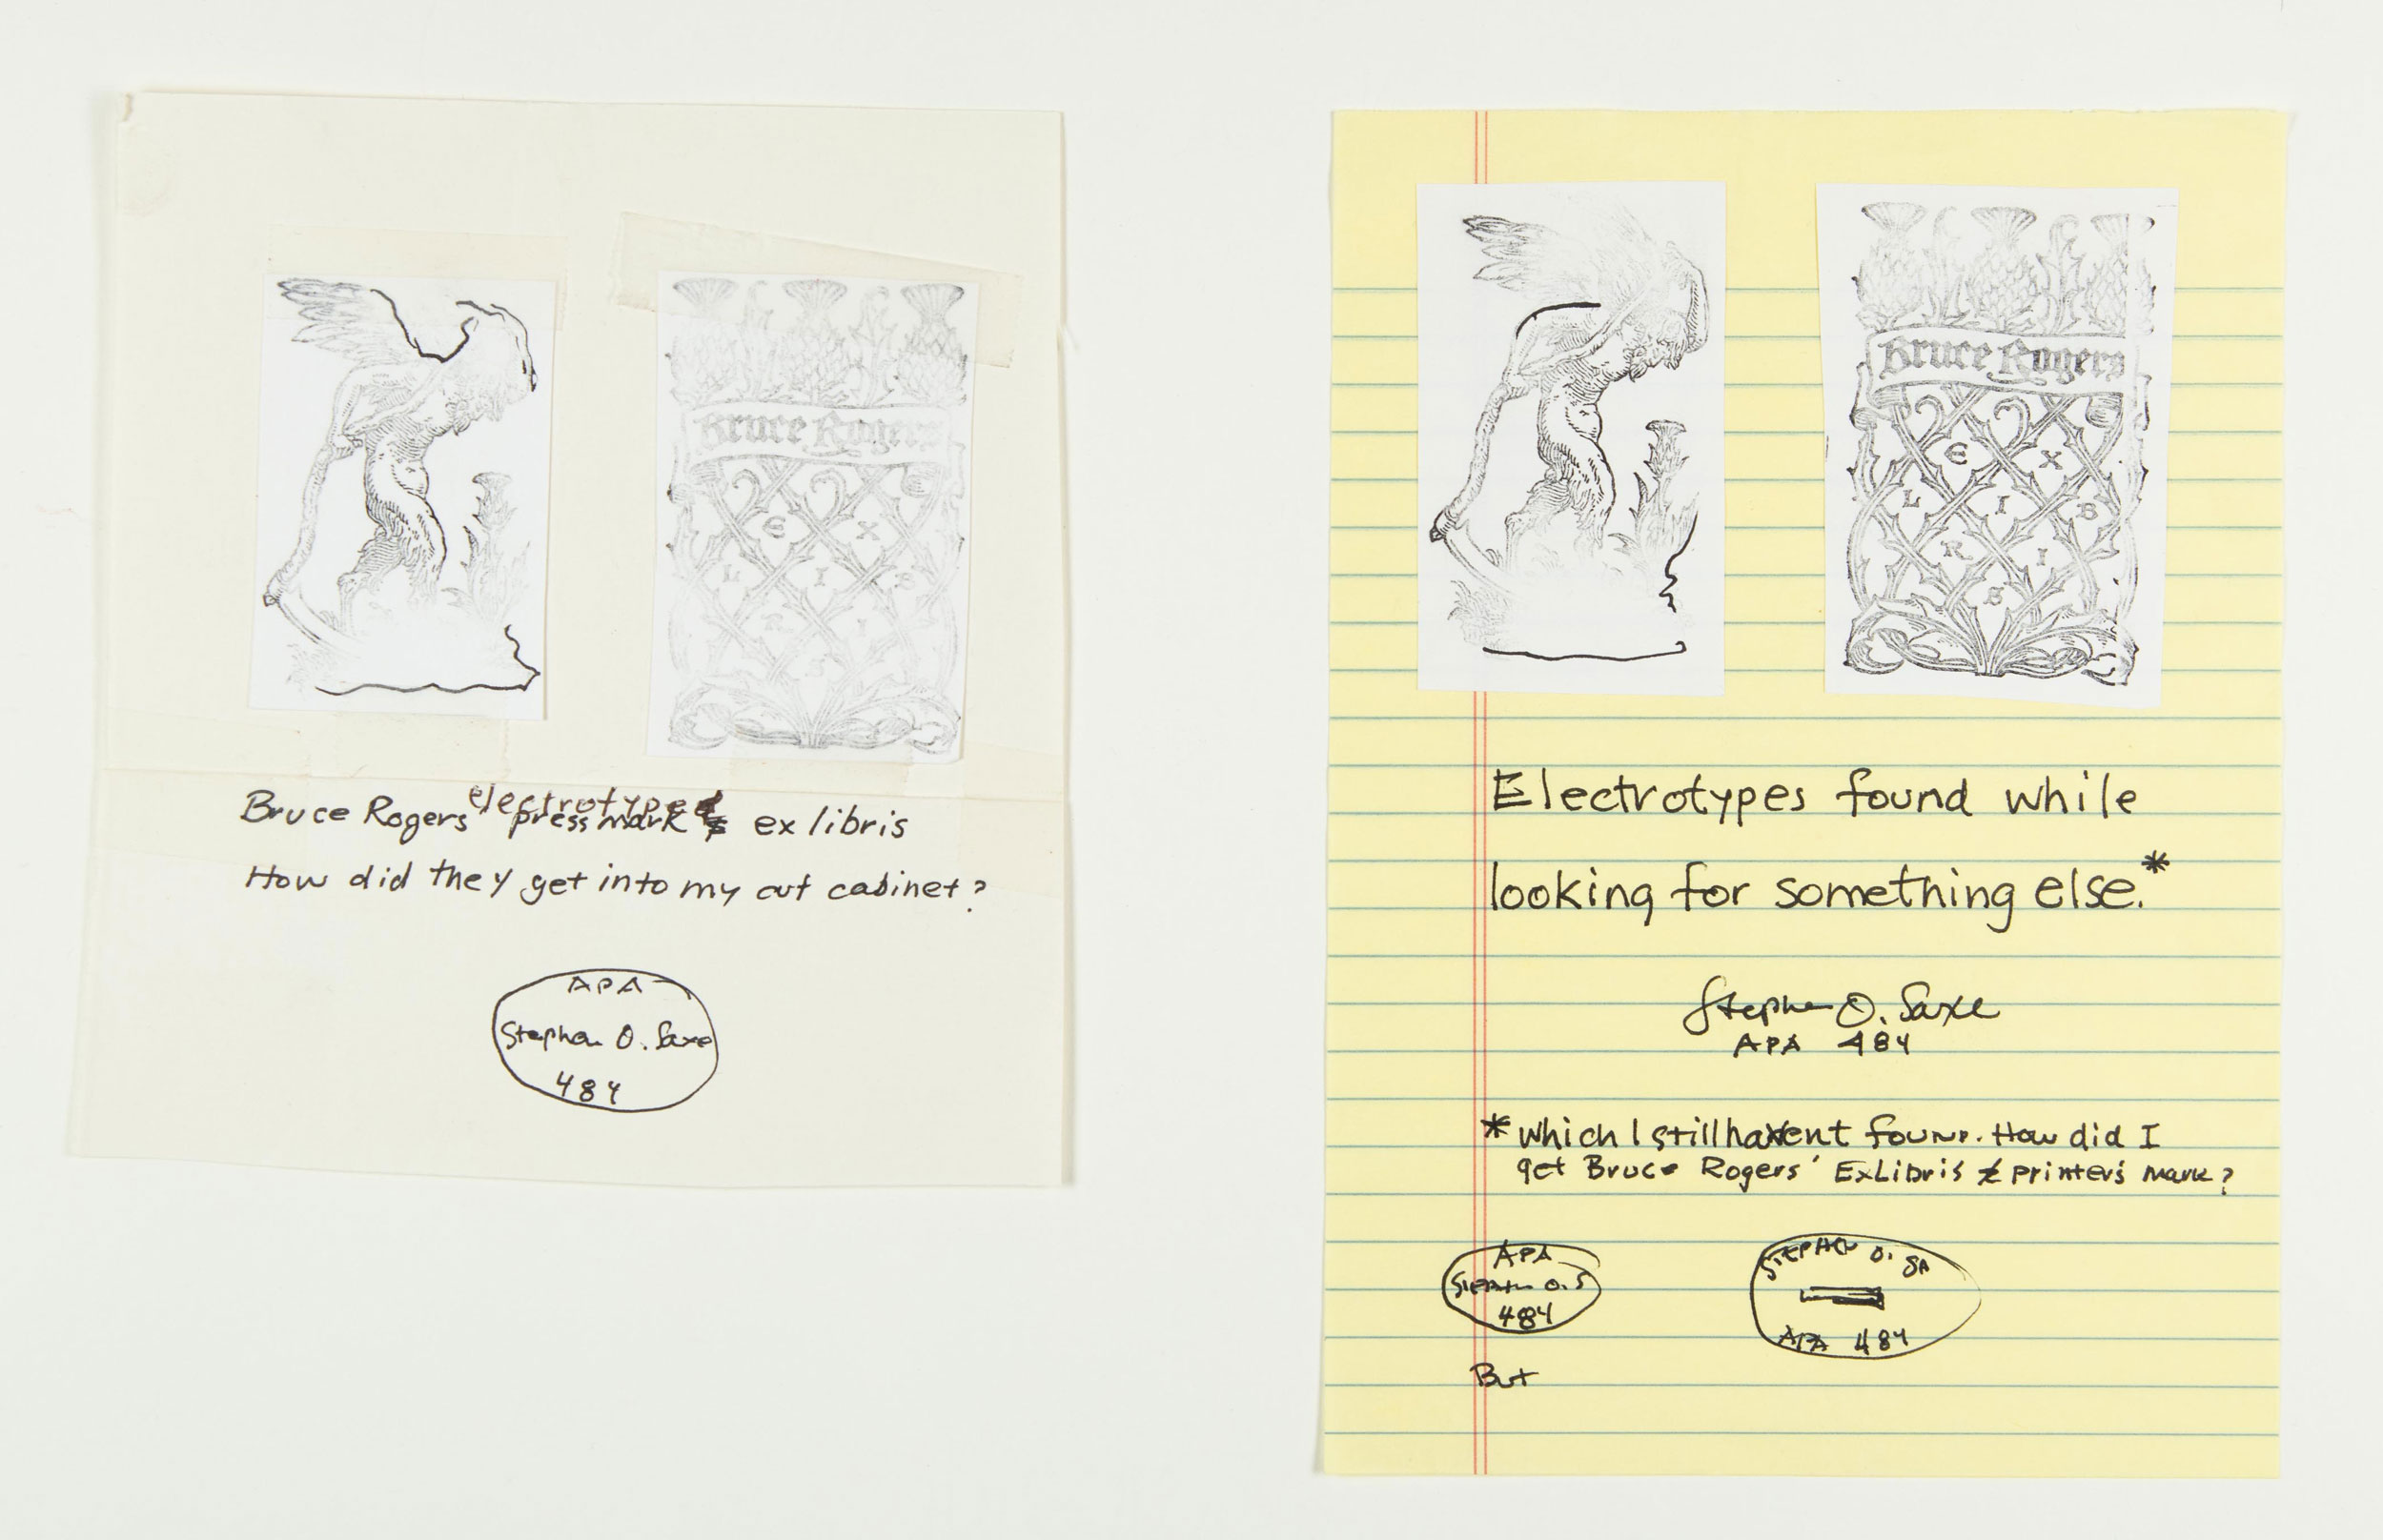 Bruce Rogers
E X
L I B
R I
S
Bruce Rogers' electrotyped pressmark & ex libris
How did they get into my cut cabinet?
APA
Stephen O. Saxe
484
Bruce Rogers
E X
L I B
R I
S
Electrotypes found while
looking for something else.*
Stephen O. Saxe
APA 484
*which I still havent found. How did I
get Bruce Rogers' ExLibris & printer's mark?
APA
Stephen O. S
484
STEPHEN O. SA
APA 484
But